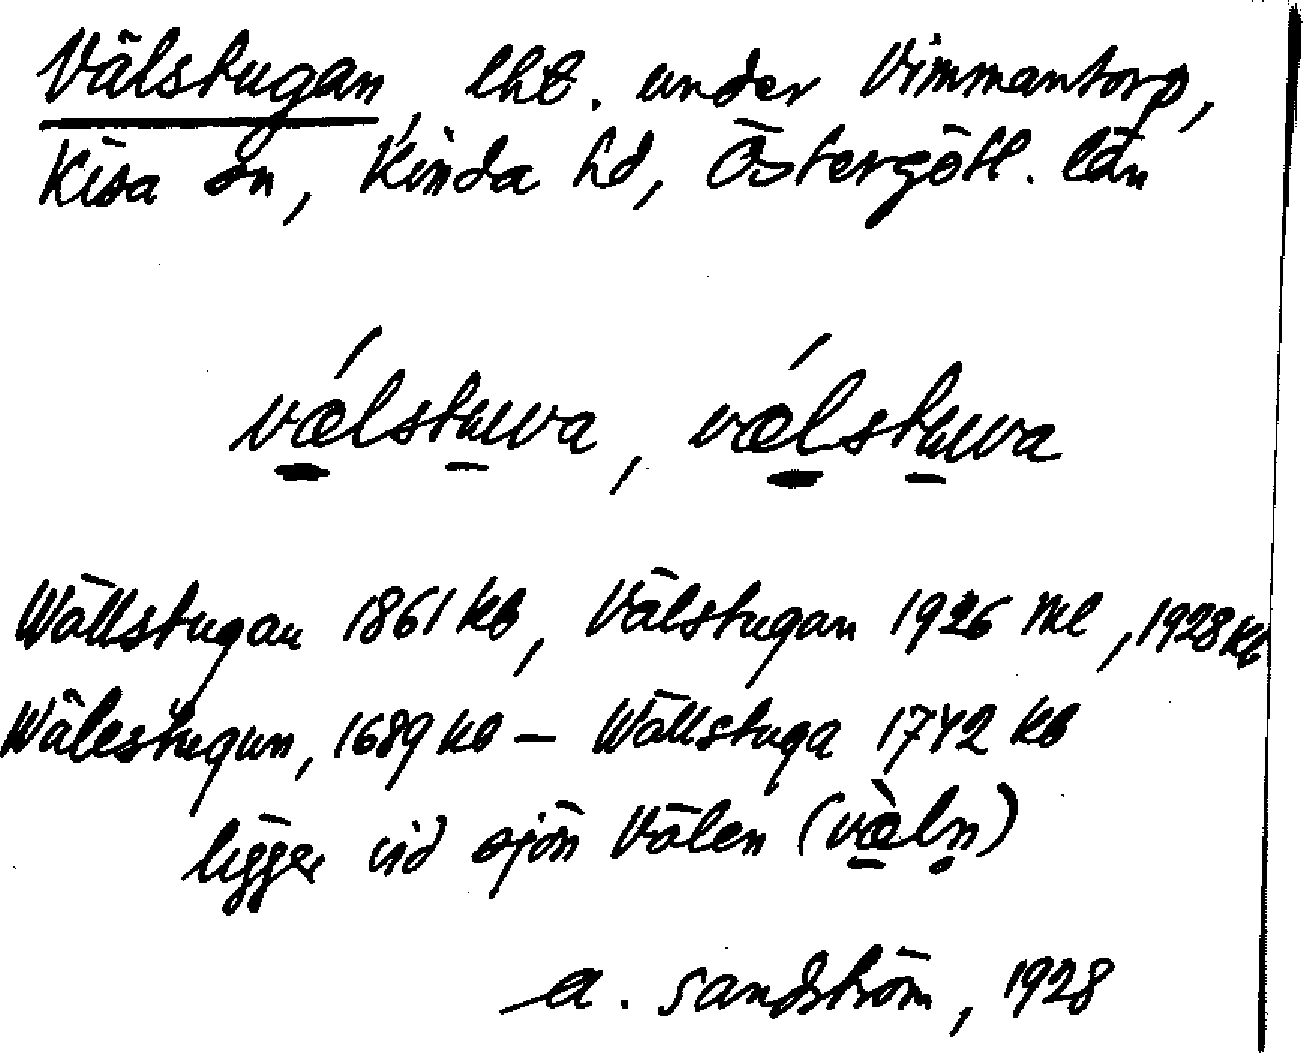 Välstugan, lht. under Vimmantorp,
Kisa sn, Kinda hd, Östergötl. län
vǽlstuwa, vǽlstuwa
Wällstugan 1861 kb, Välstugan 1926 ml, 1928 kb
Wälestugun, 1689 kb – Wällstuga 1742 kb
ligger vid sjön Välen (væ̀ln)
A. Sandström, 1928